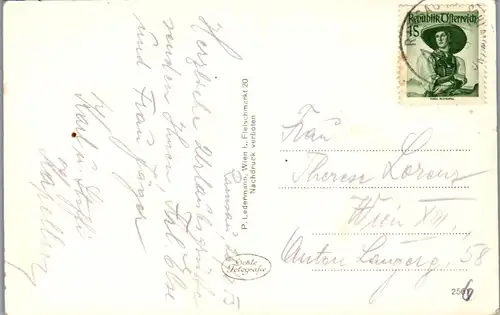 Ramsau, 26.
Herzliche Urlaubsgrüße
senden Ihnen Frl. Else
und Frau Jäger
Karl u. Steffi
P. Ledermann, Wien I., Fleischmarkt 20
Nachdruck verboten
Echte
Fotografie
Republik Österreich
1S
Frau
Therese Lorenz
Wien XIII,
Anton Langerg. 58
256
6